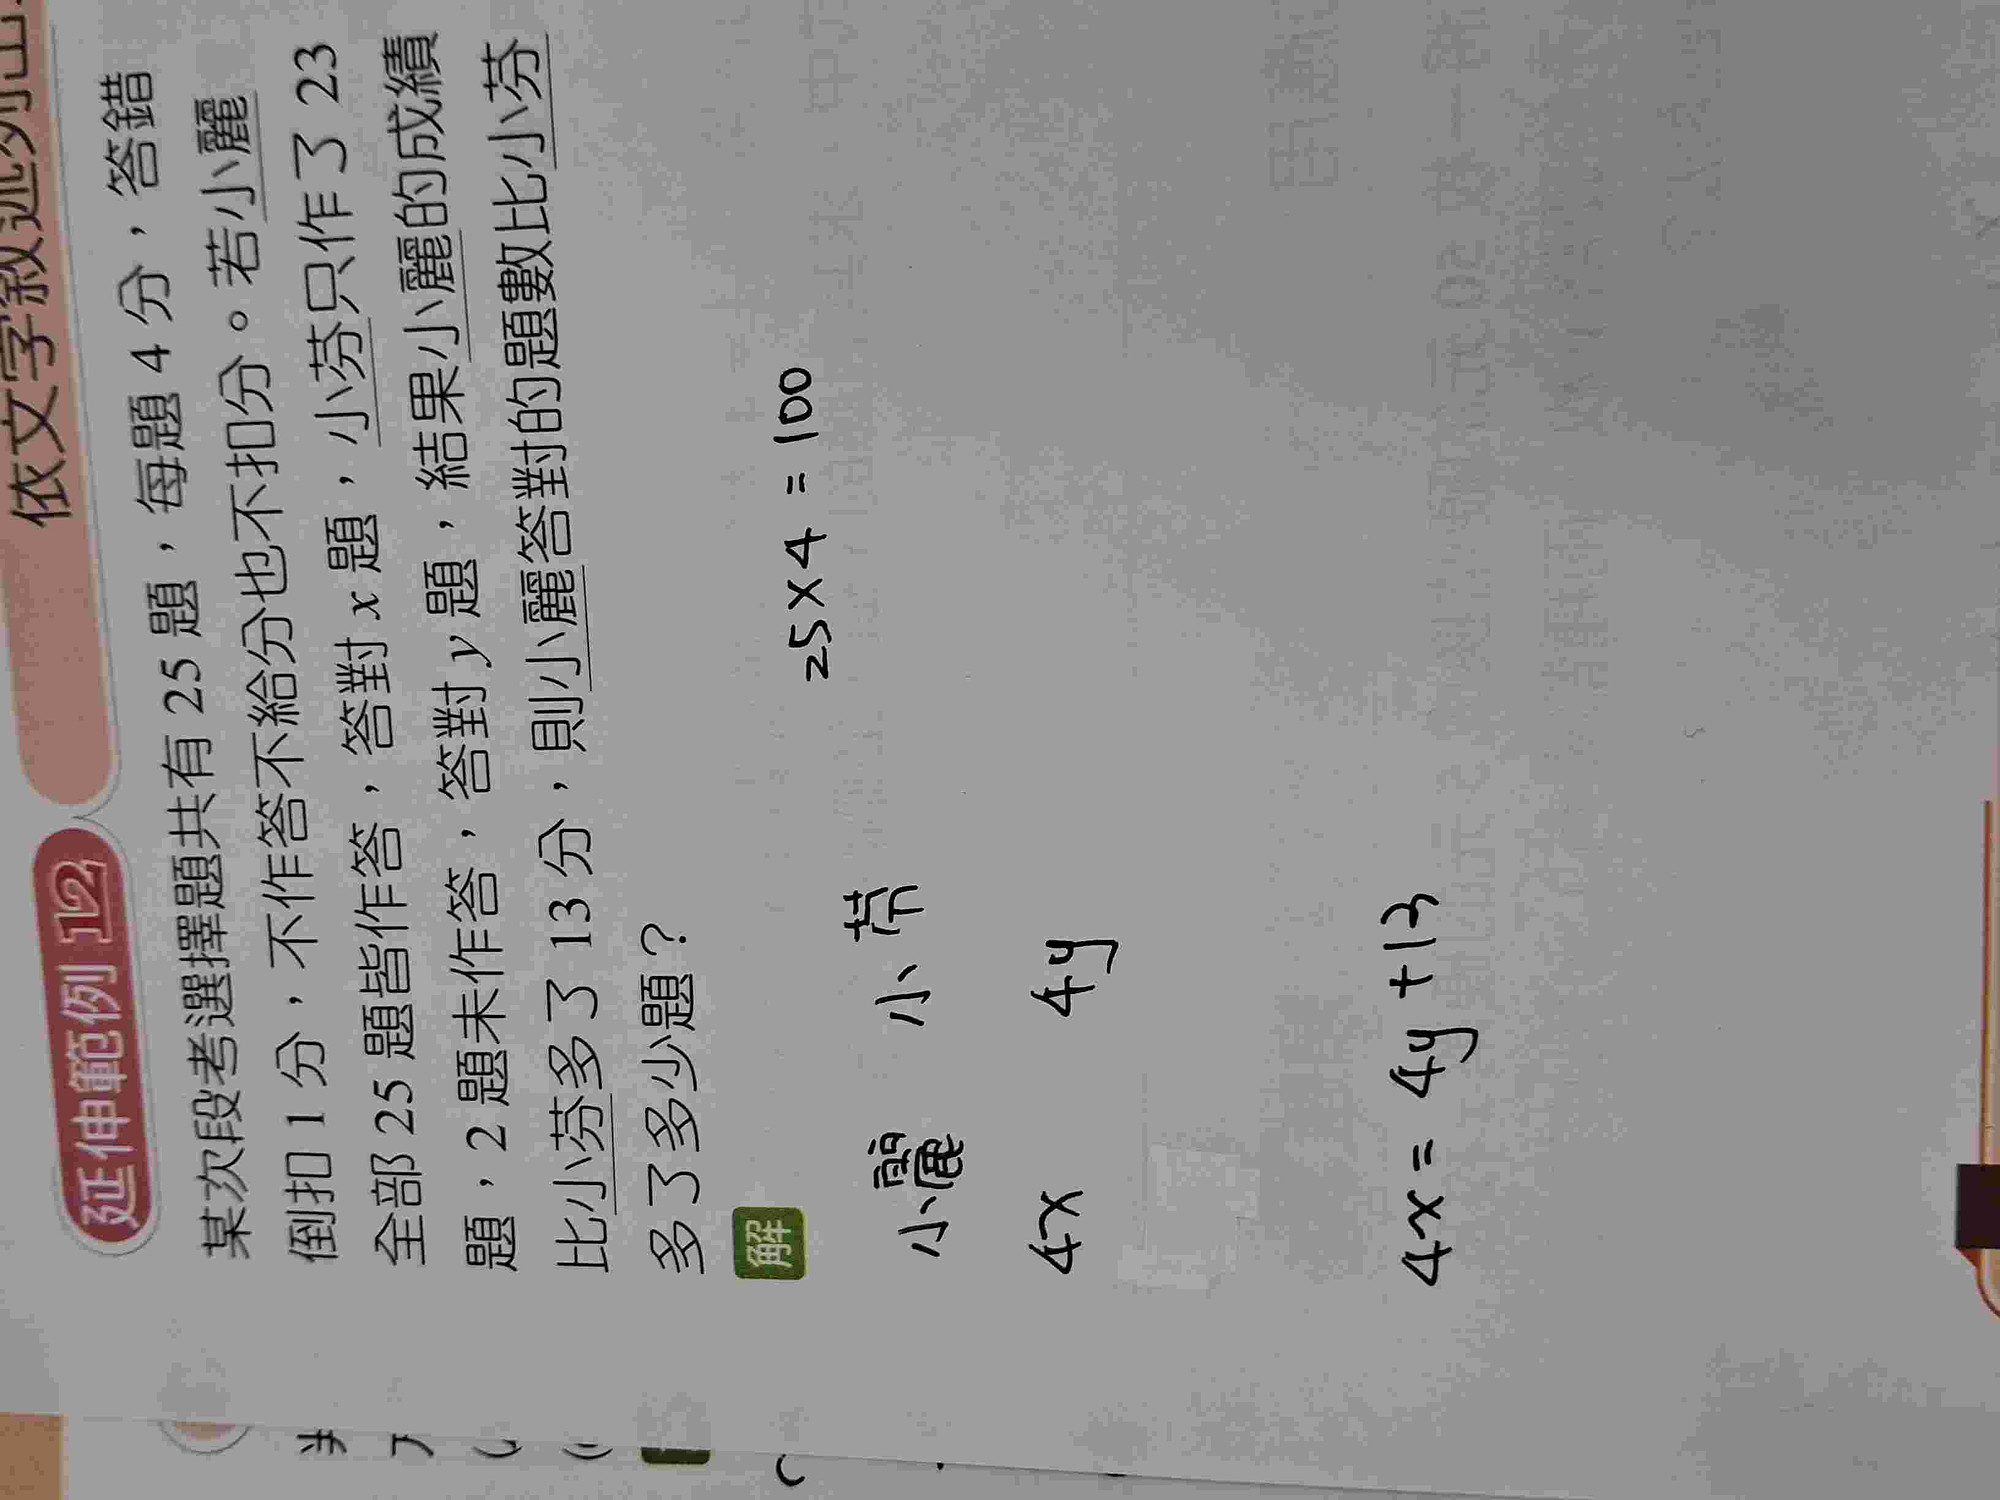 延伸範例 12 依文字敘述列出
某次段考選擇題共有 25 題，每題 4 分，答錯
倒扣 1 分，不作答不給分也不扣分。若小麗
全部 25 題皆作答，答對 x 題，小芬只作了 23
題，2 題未作答，答對 y 題，結果小麗的成績
比小芬多了 13 分，則小麗答對的題數比小芬
多了多少題？
解
25×4=100
小麗 小芬
4x 4y
4x=4y+13